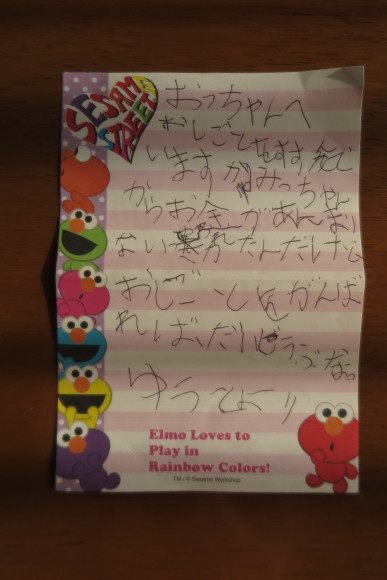 SESAME STREET
おっちゃんへ
おしごとを
いますがみっちゃん
からお金があんまり
ない われたんだけど
おしごとをがんば
ればだいじょうぶ
ゆうこより
Elmo Loves to
Play in
Rainbow Colors!
TM / © Sesame Workshop